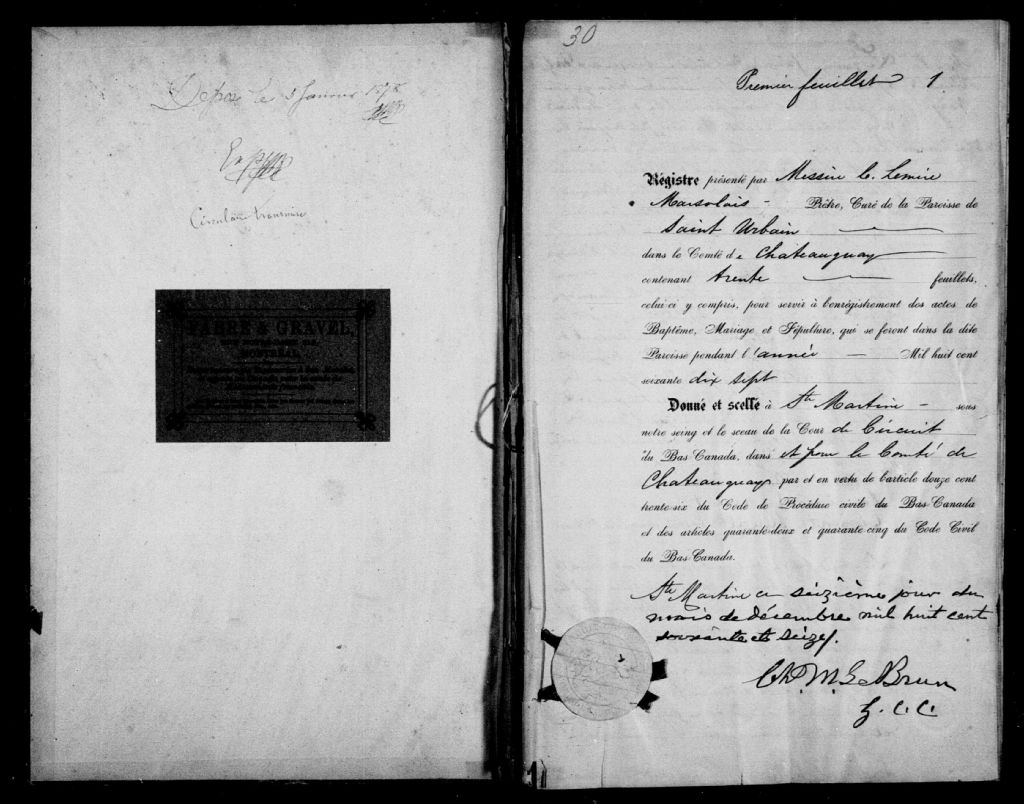 Déposé le 5 Janvier 1878
Circulaire
FABRE & GRAVEL,
MONTRÉAL
30
Premier feuillet 1
Régistre présenté par Messire C. Lemire
Marsolais - Prêtre, Curé de la Paroisse de
Saint Urbain
dans le Comté de Chateauguay
contenant trente feuillets,
celui-ci y compris, pour servir à l'enrégistrement des actes de
Baptême, Mariage et Sépulture, qui se feront dans la dite
Paroisse pendant l'année — Mil huit cent
soixante dix sept
Donné et scellé à Ste Martine - sous
notre seing et le sceau de la Cour de Circuit
du Bas-Canada, dans et pour le Comté de
Chateauguay par et en vertu de l'article douze cent
trente-six du Code de Procédure civile du Bas-Canada
et des articles quarante-deux et quarante-cinq du Code Civil
du Bas-Canada.
Ste Martine ce seizième jour du
mois de décembre mil huit cent
soixante et seize.
Ch. M. LeBrun
G. C. C.